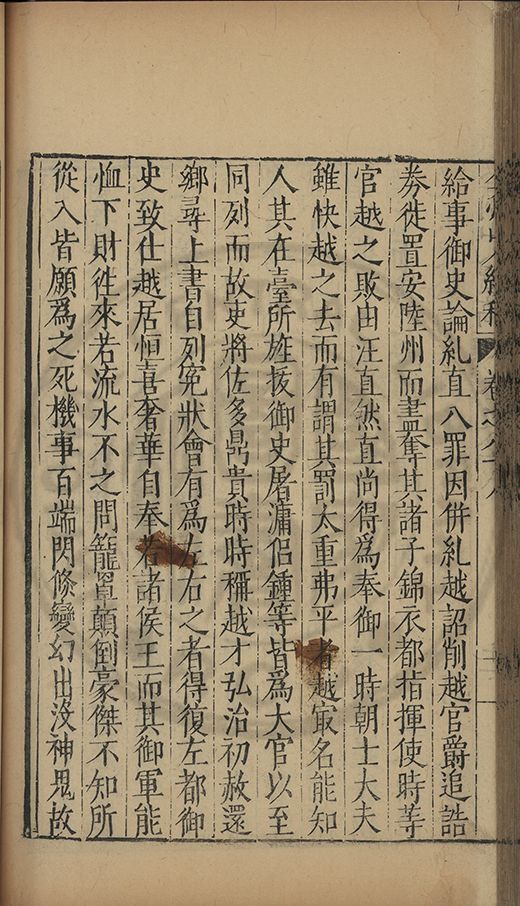 弇州史料
卷之
給事御史論糺直八罪因併糺越詔削越官爵追誥
劵徙置安陸州而盡奪其諸子錦衣都指揮使時等
官越之敗由汪直然直尚得爲奉御一時朝士大夫
雖快越之去而有謂其罰太重弗平者越㝡名能知
人其在臺所旌拔御史屠滽侣鍾等皆爲大官以至
同列而故吏將佐多鼎貴時時稱越才弘治初赦還
鄉尋上書自列冤狀會有爲左右之者得復左都御
史致仕越居恒喜奢華自奉若諸侯王而其御軍能
恤下財徃來若流水不之問籠罩顛倒豪傑不知所
從入皆願爲之死機事百端閃倐變幻出沒神鬼故